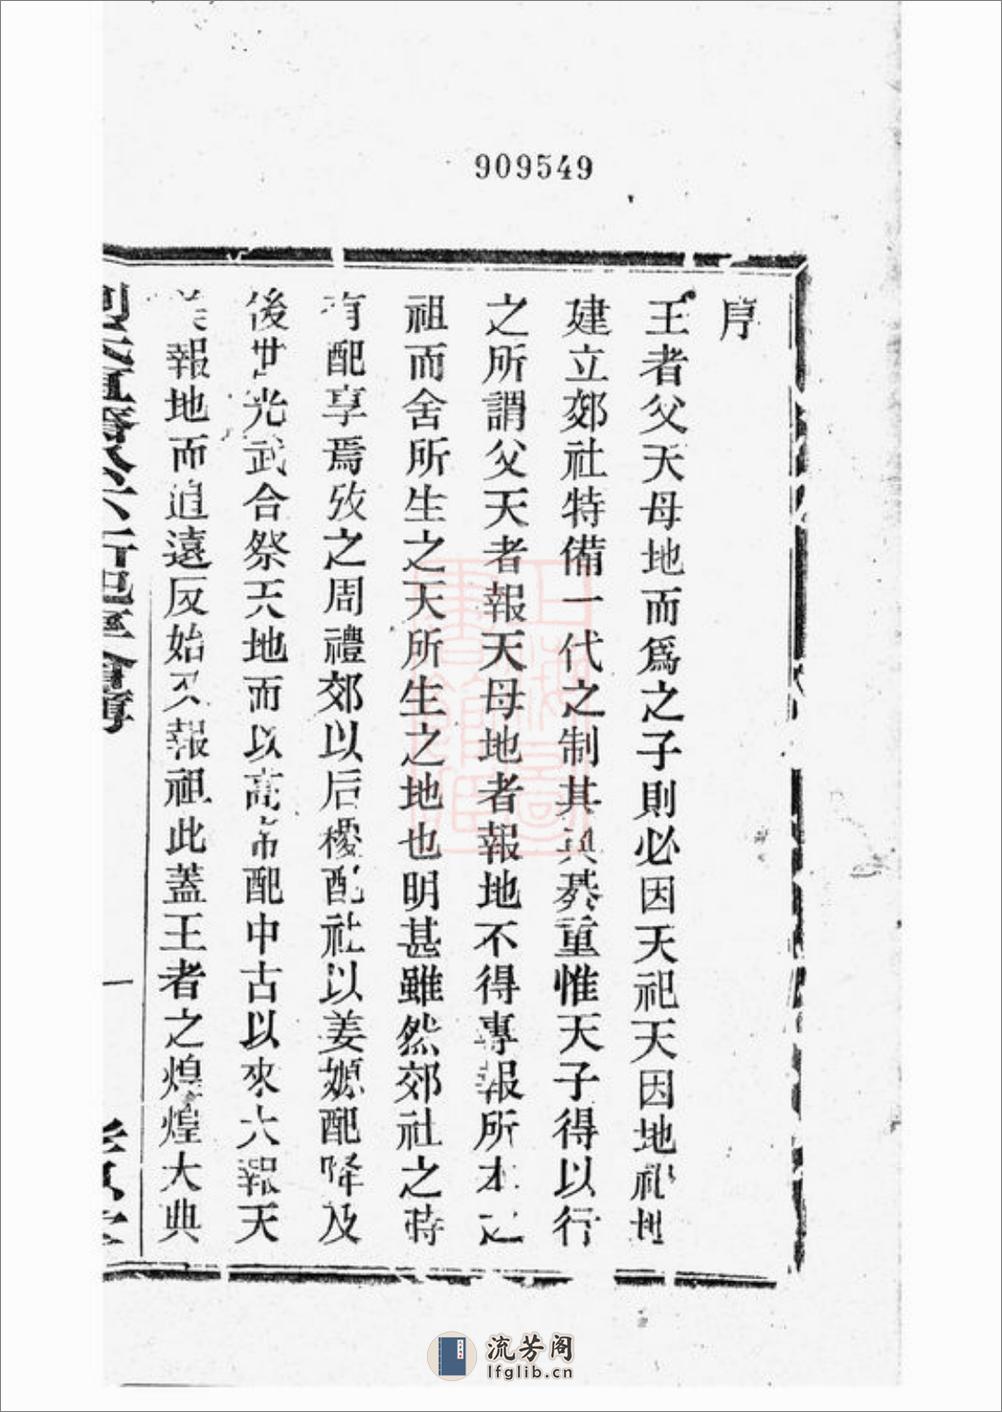 909549
序
王者父天母地而爲之子則必因天祀天因地祀地
建立郊社特備一代之制其典綦重惟天子得以行
之所謂父天者報天母地者報地不得專報所本之
祖而舍所生之天所生之地也明甚雖然郊社之時
有配享焉攷之周禮郊以后稷配社以姜嫄配降及
後世光武合祭天地而以高帝配中古以來大報天
美報地而追遠反始又報祖此蓋王者之煌煌大典
一
上海圖書館藏
流芳阁
lfglib.cn